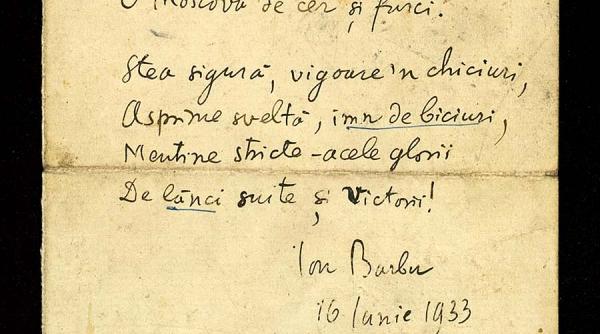 O Moscova de cer și furci.
Stea sigură, vigoare'n chiciuri,
Asprime sveltă, imn de biciuri,
Mentine stricte-acele glorii
De lănci suite și victorii!
Ion Barbu
16 Iunie 1933